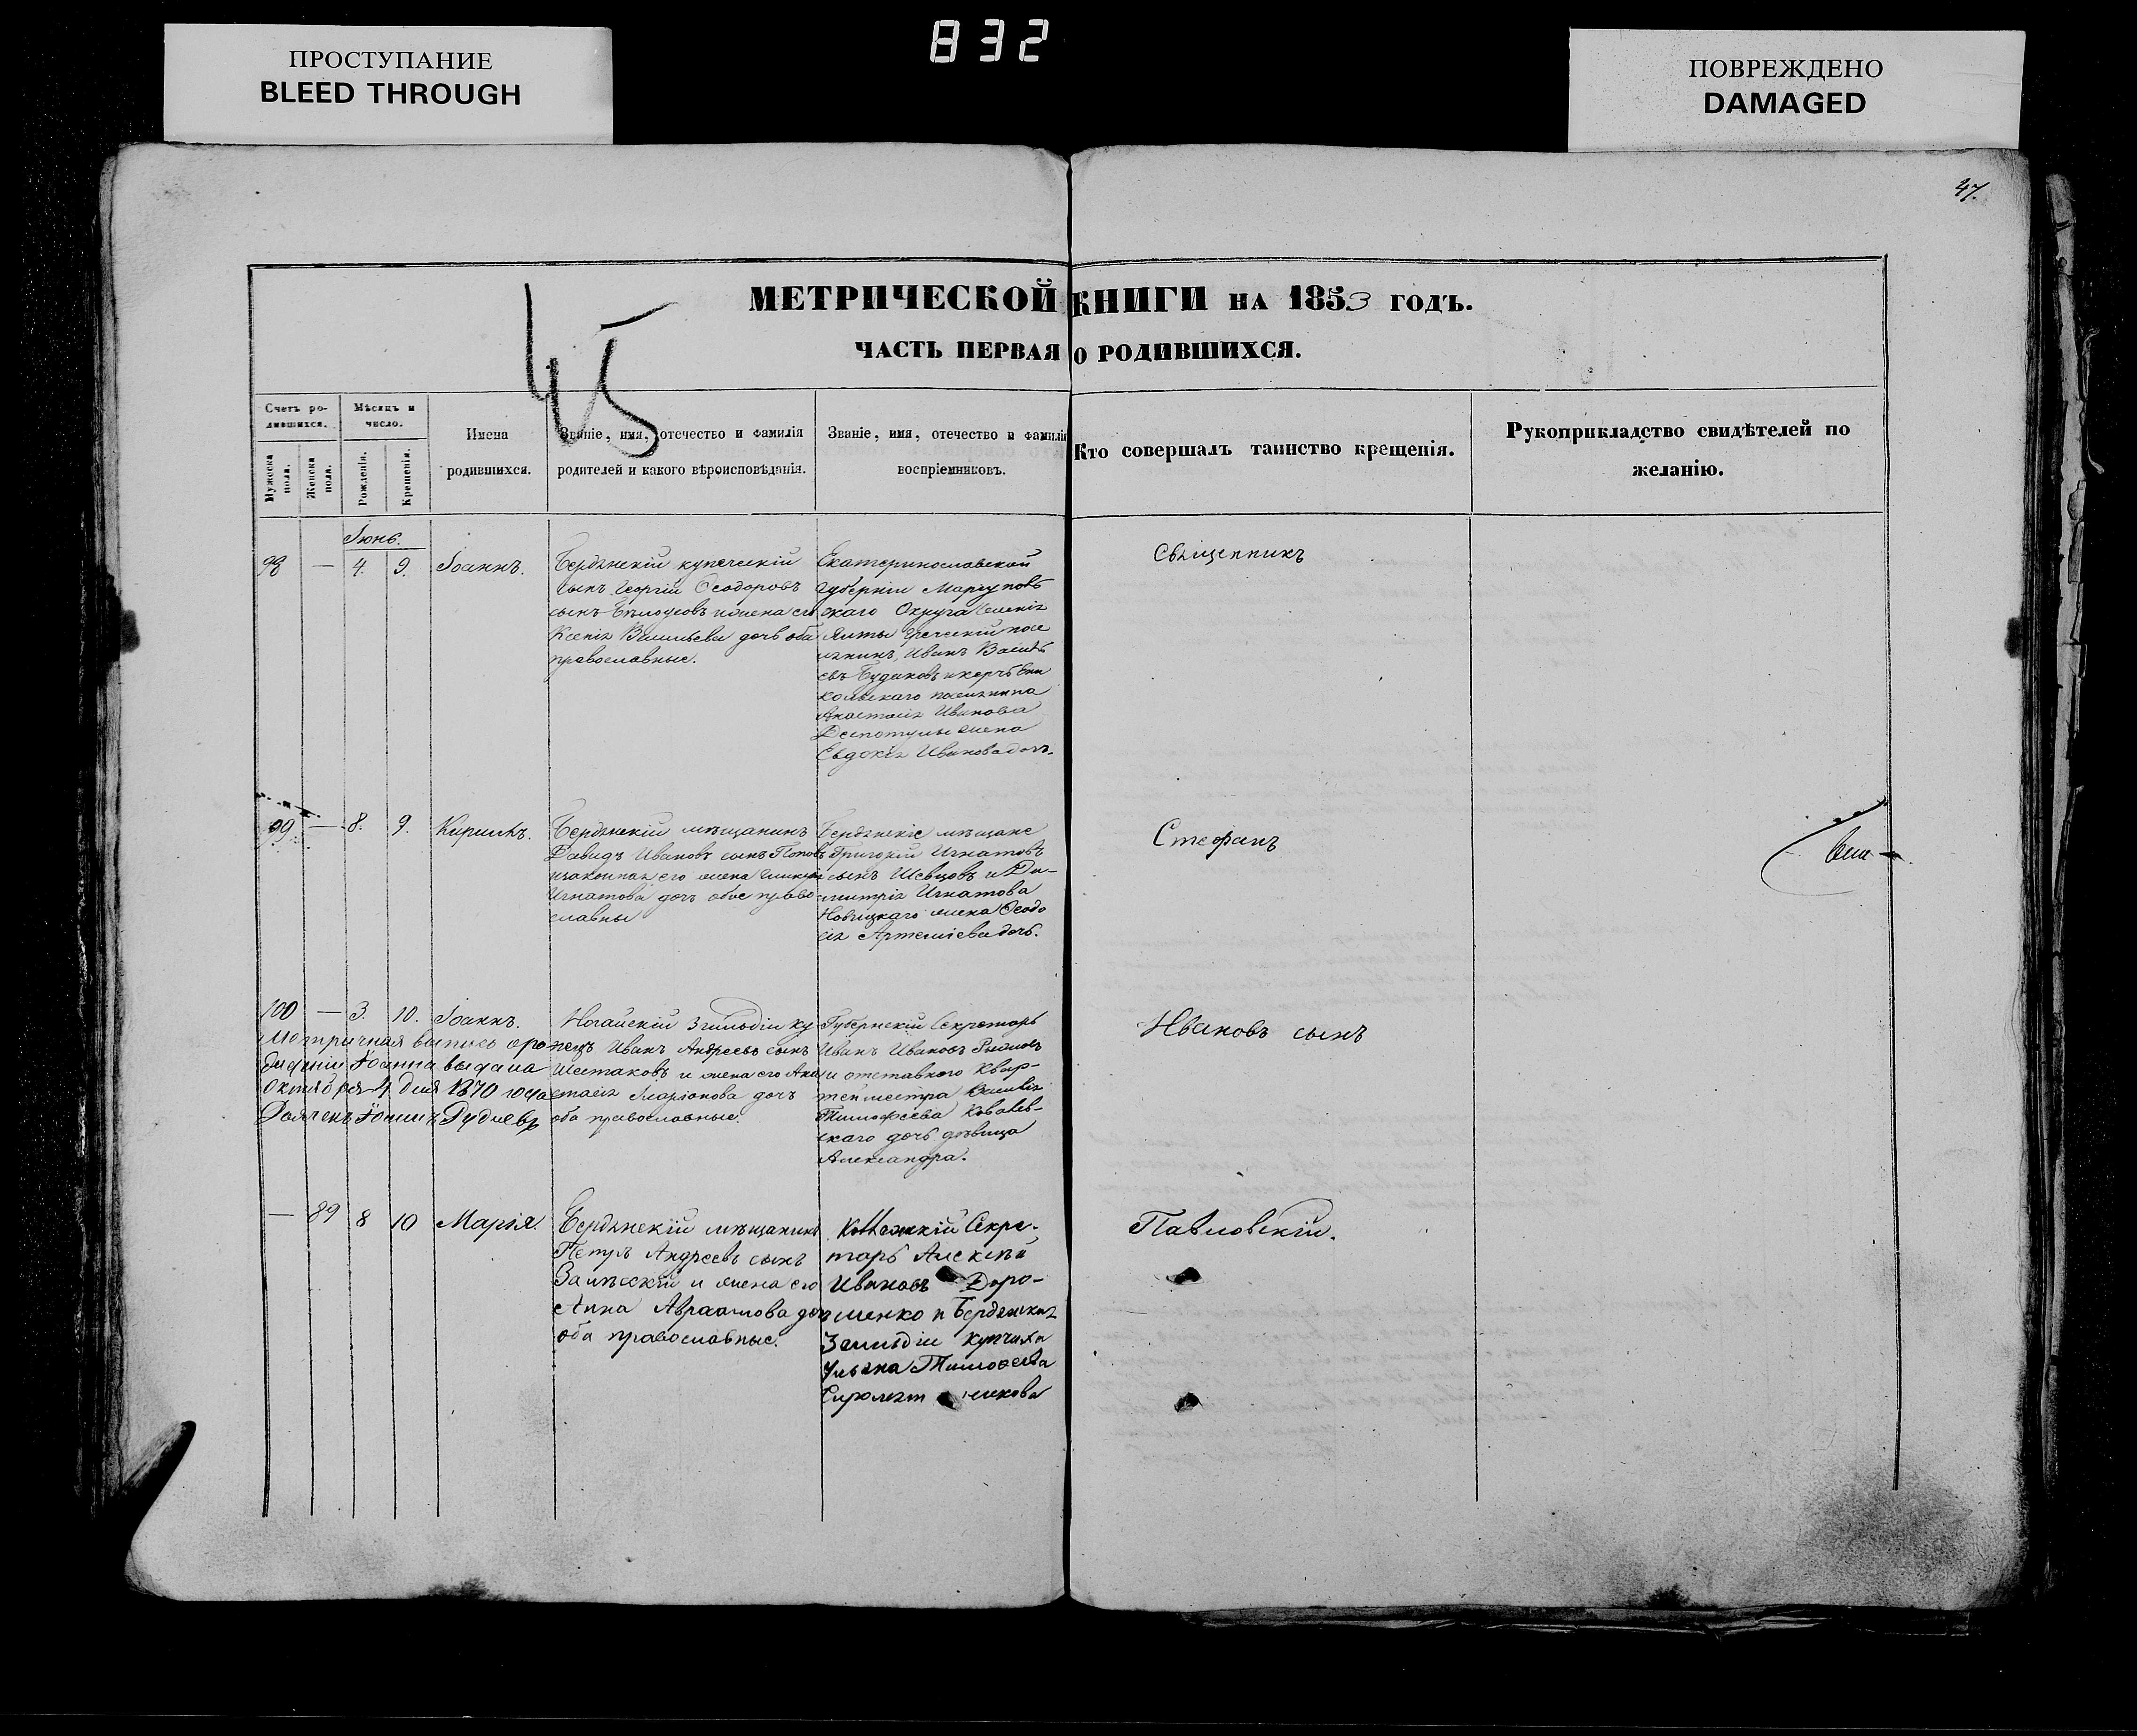 832
ПРОСТУПАНИЕ
BLEED THROUGH
ПОВРЕЖДЕНО
DAMAGED
47.
МЕТРИЧЕСКОЙ КНИГИ НА 1853 ГОДЪ.
45
ЧАСТЬ ПЕРВАЯ О РОДИВШИХСЯ.
Счетъ ро-
дившихся.
Мужеска
пола.
Женска
пола.
Мѣсяцъ и
число.
Рожденія.
Крещенія.
Имена
родившихся.
Званіе, имя, отечество и фамилія
родителей и какого вѣроисповѣданія.
Званіе, имя, отечество и фамилія
воспріемниковъ.
Кто совершалъ таинство крещенія.
Рукоприкладство свидѣтелей по
желанію.
Іюнь.
98 — 4. 9. Іоаннъ.
Бердянскій купеческій
сынъ Георгій Ѳеодоровъ
сынъ Бѣлоусовъ и жена его
Ксенія Васильева дочь оба
православные.
Екатеринославской
Губерніи Маріуполь
скаго Округа Селенія
Ялты Греческій посе
лянинъ, Иванъ Василь
евъ Будаковъ и Керчь Ени
кольскаго поселянина
Анастасія Иванова
жена
Евдокія Иванова дочь.
Священникъ
99. — 8. 9. Кириллъ.
Бердянскій мѣщанинъ
Давидъ Ивановъ сынъ Поповъ
и законная его жена
Игнатова дочь обое право
славны
Бердянскіе мѣщане
Григорій Игнатовъ
сынъ Шевцовъ и Ди-
митрія Игнатова
Новицкаго жена Ѳеодо
сія Артеміева дочь.
Стефанъ
100 — 3. 10. Іоаннъ.
Метричная выпись о ро
жденіи Іоанна выдана
Октября 4 дня 1870 года
Ногайскій 3 гильдіи ку
пецъ Иванъ Андреевъ сынъ
Шестаковъ и жена его Ана
стасія Иларіонова дочь
оба православные.
Губернскій Секретарь
Иванъ Ивановъ
и отставного Квар-
тейместра Василія
Тимофеева Ковалев-
скаго дочь дѣвица
Александра.
Ивановъ сынъ
— 89 8 10 Марія.
Бердянскій мѣщанинъ
Петръ Андреевъ сынъ
Залѣсскій и жена его
Анна Авраамова дочь
оба православные.
Коллежскій Секре-
тарь Алексѣй
Ивановъ Доро-
шенко и Бердянская
3 гильдіи купчиха
Ульяна Тимофеева
Павловскій.